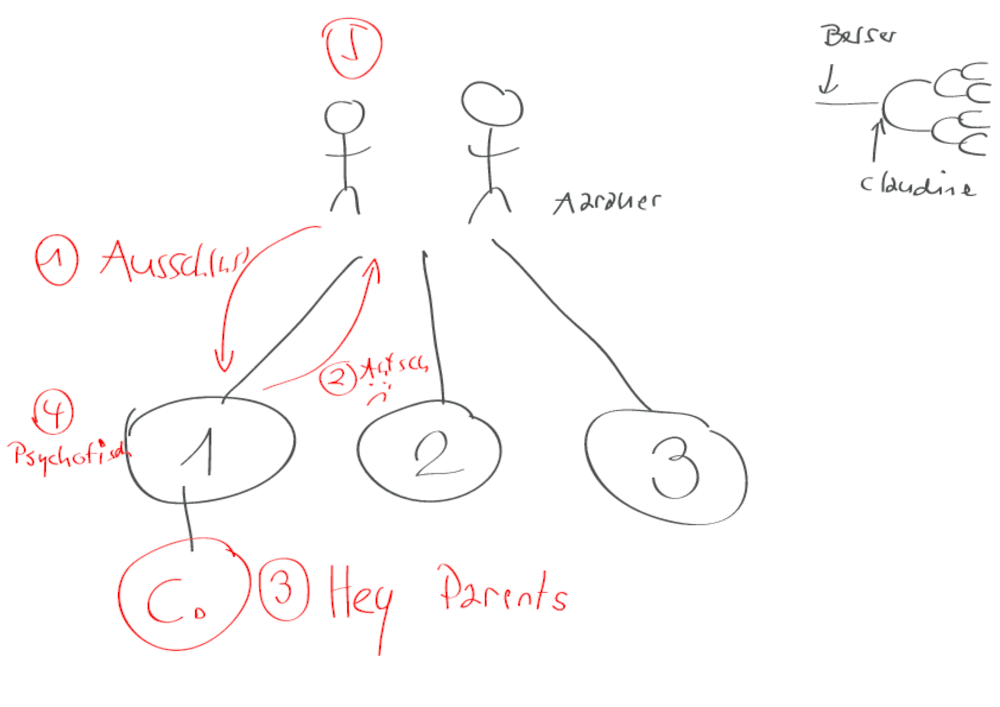 5
Besser
Claudine
Aarauer
① Ausschluss
②
④
Psychotisch
1
2
3
C.
③ Hey Parents